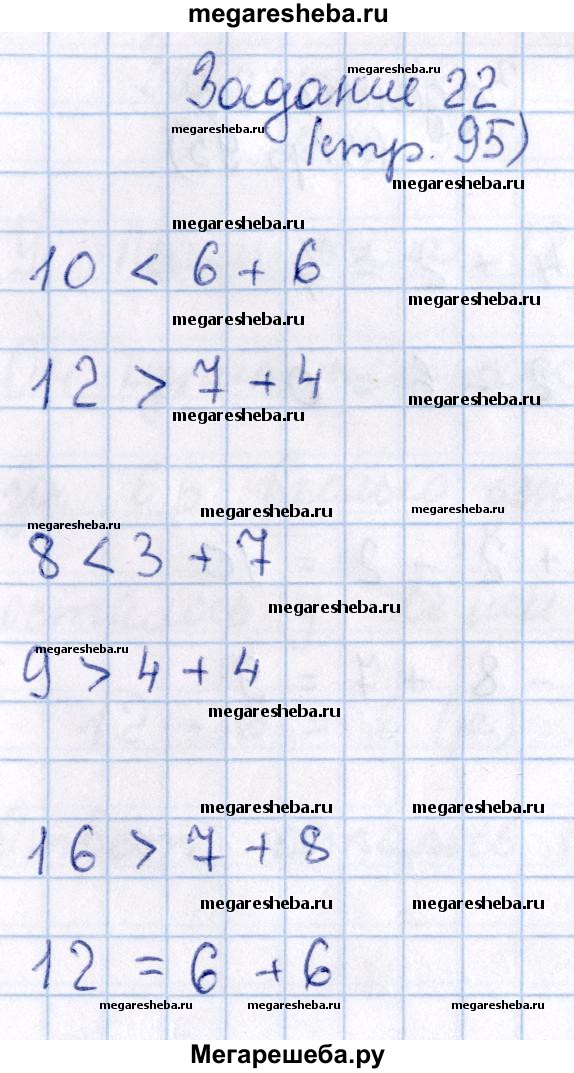 megaresheba.ru
megaresheba.ru
Задание 22
megaresheba.ru
(стр. 95)
megaresheba.ru
megaresheba.ru
10 < 6 + 6
megaresheba.ru
megaresheba.ru
12 > 7 + 4
megaresheba.ru
megaresheba.ru
megaresheba.ru
megaresheba.ru
megaresheba.ru
8 < 3 + 7
megaresheba.ru
megaresheba.ru
9 > 4 + 4
megaresheba.ru
megaresheba.ru
megaresheba.ru
16 > 7 + 8
megaresheba.ru
megaresheba.ru
12 = 6 + 6
megaresheba.ru
megaresheba.ru
megaresheba.ru
Мегарешеба.ру